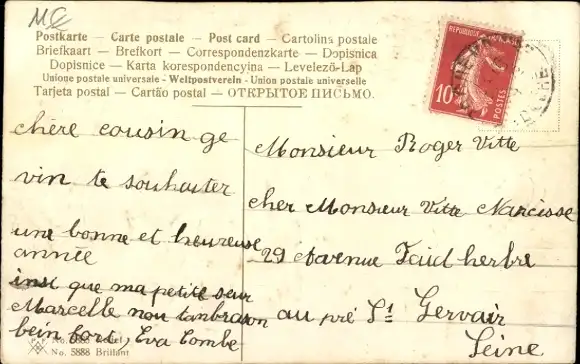 MC
Postkarte — Carte postale — Post card — Cartolina postale
Briefkaart — Brefkort — Correspondenzkarte — Dopisnica
Dopisnice — Karta korespondencyjna — Levelező-Lap
Unione postale universale - Weltpostverein - Union postale universelle
Tarjeta postal — Cartão postal — ОТКРЫТОЕ ПИСЬМО.
REPUBLIQUE FRANÇAISE
10
POSTES
chère cousin ge
vin te souhaiter
une bonne et heureuse
année
insi que ma petite seur
Marcelle nou tanbrason
bein fort, Eva Combe
No. 5888
No. 5888 Brillant
Monsieur Roger Vitte
cher Monsieur Vitte Narcisse
29 Avenue Faid herbe
au pré St Gervair
Seine